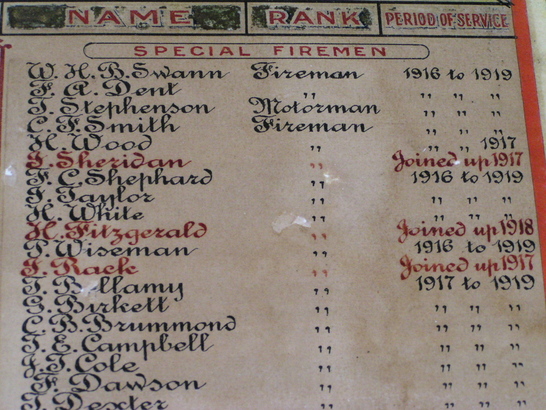 NAME RANK PERIOD OF SERVICE
SPECIAL FIREMEN
W. H. B. Swann Fireman 1916 to 1919
F. A. Dent " " " "
J. Stephenson Motorman " " "
C. F. Smith Fireman " " "
H. Wood " " " 1917
J. Sheridan " Joined up 1917
F. C. Shephard " 1916 to 1919
J. Taylor " " " "
H. White " " " "
H. Fitzgerald " Joined up 1918
T. Wiseman " 1916 to 1919
J. Rack " Joined up 1917
Bellamy " 1917 to 1919
G. Birkett " " " "
C. B. Brummond " " " "
J. E. Campbell " " " "
J. T. Cole " " " "
F. Dawson " " " "
J. Dexter " " " "